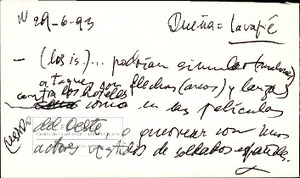 N 29-6-93
Dueña = Lavapié
— (los is.)... podrían simular
ataques con flechas (arcos) y lanzas
contra los hoteles como en las películas
del Oeste, o guerrear con unos
actores vestidos de soldados españoles.